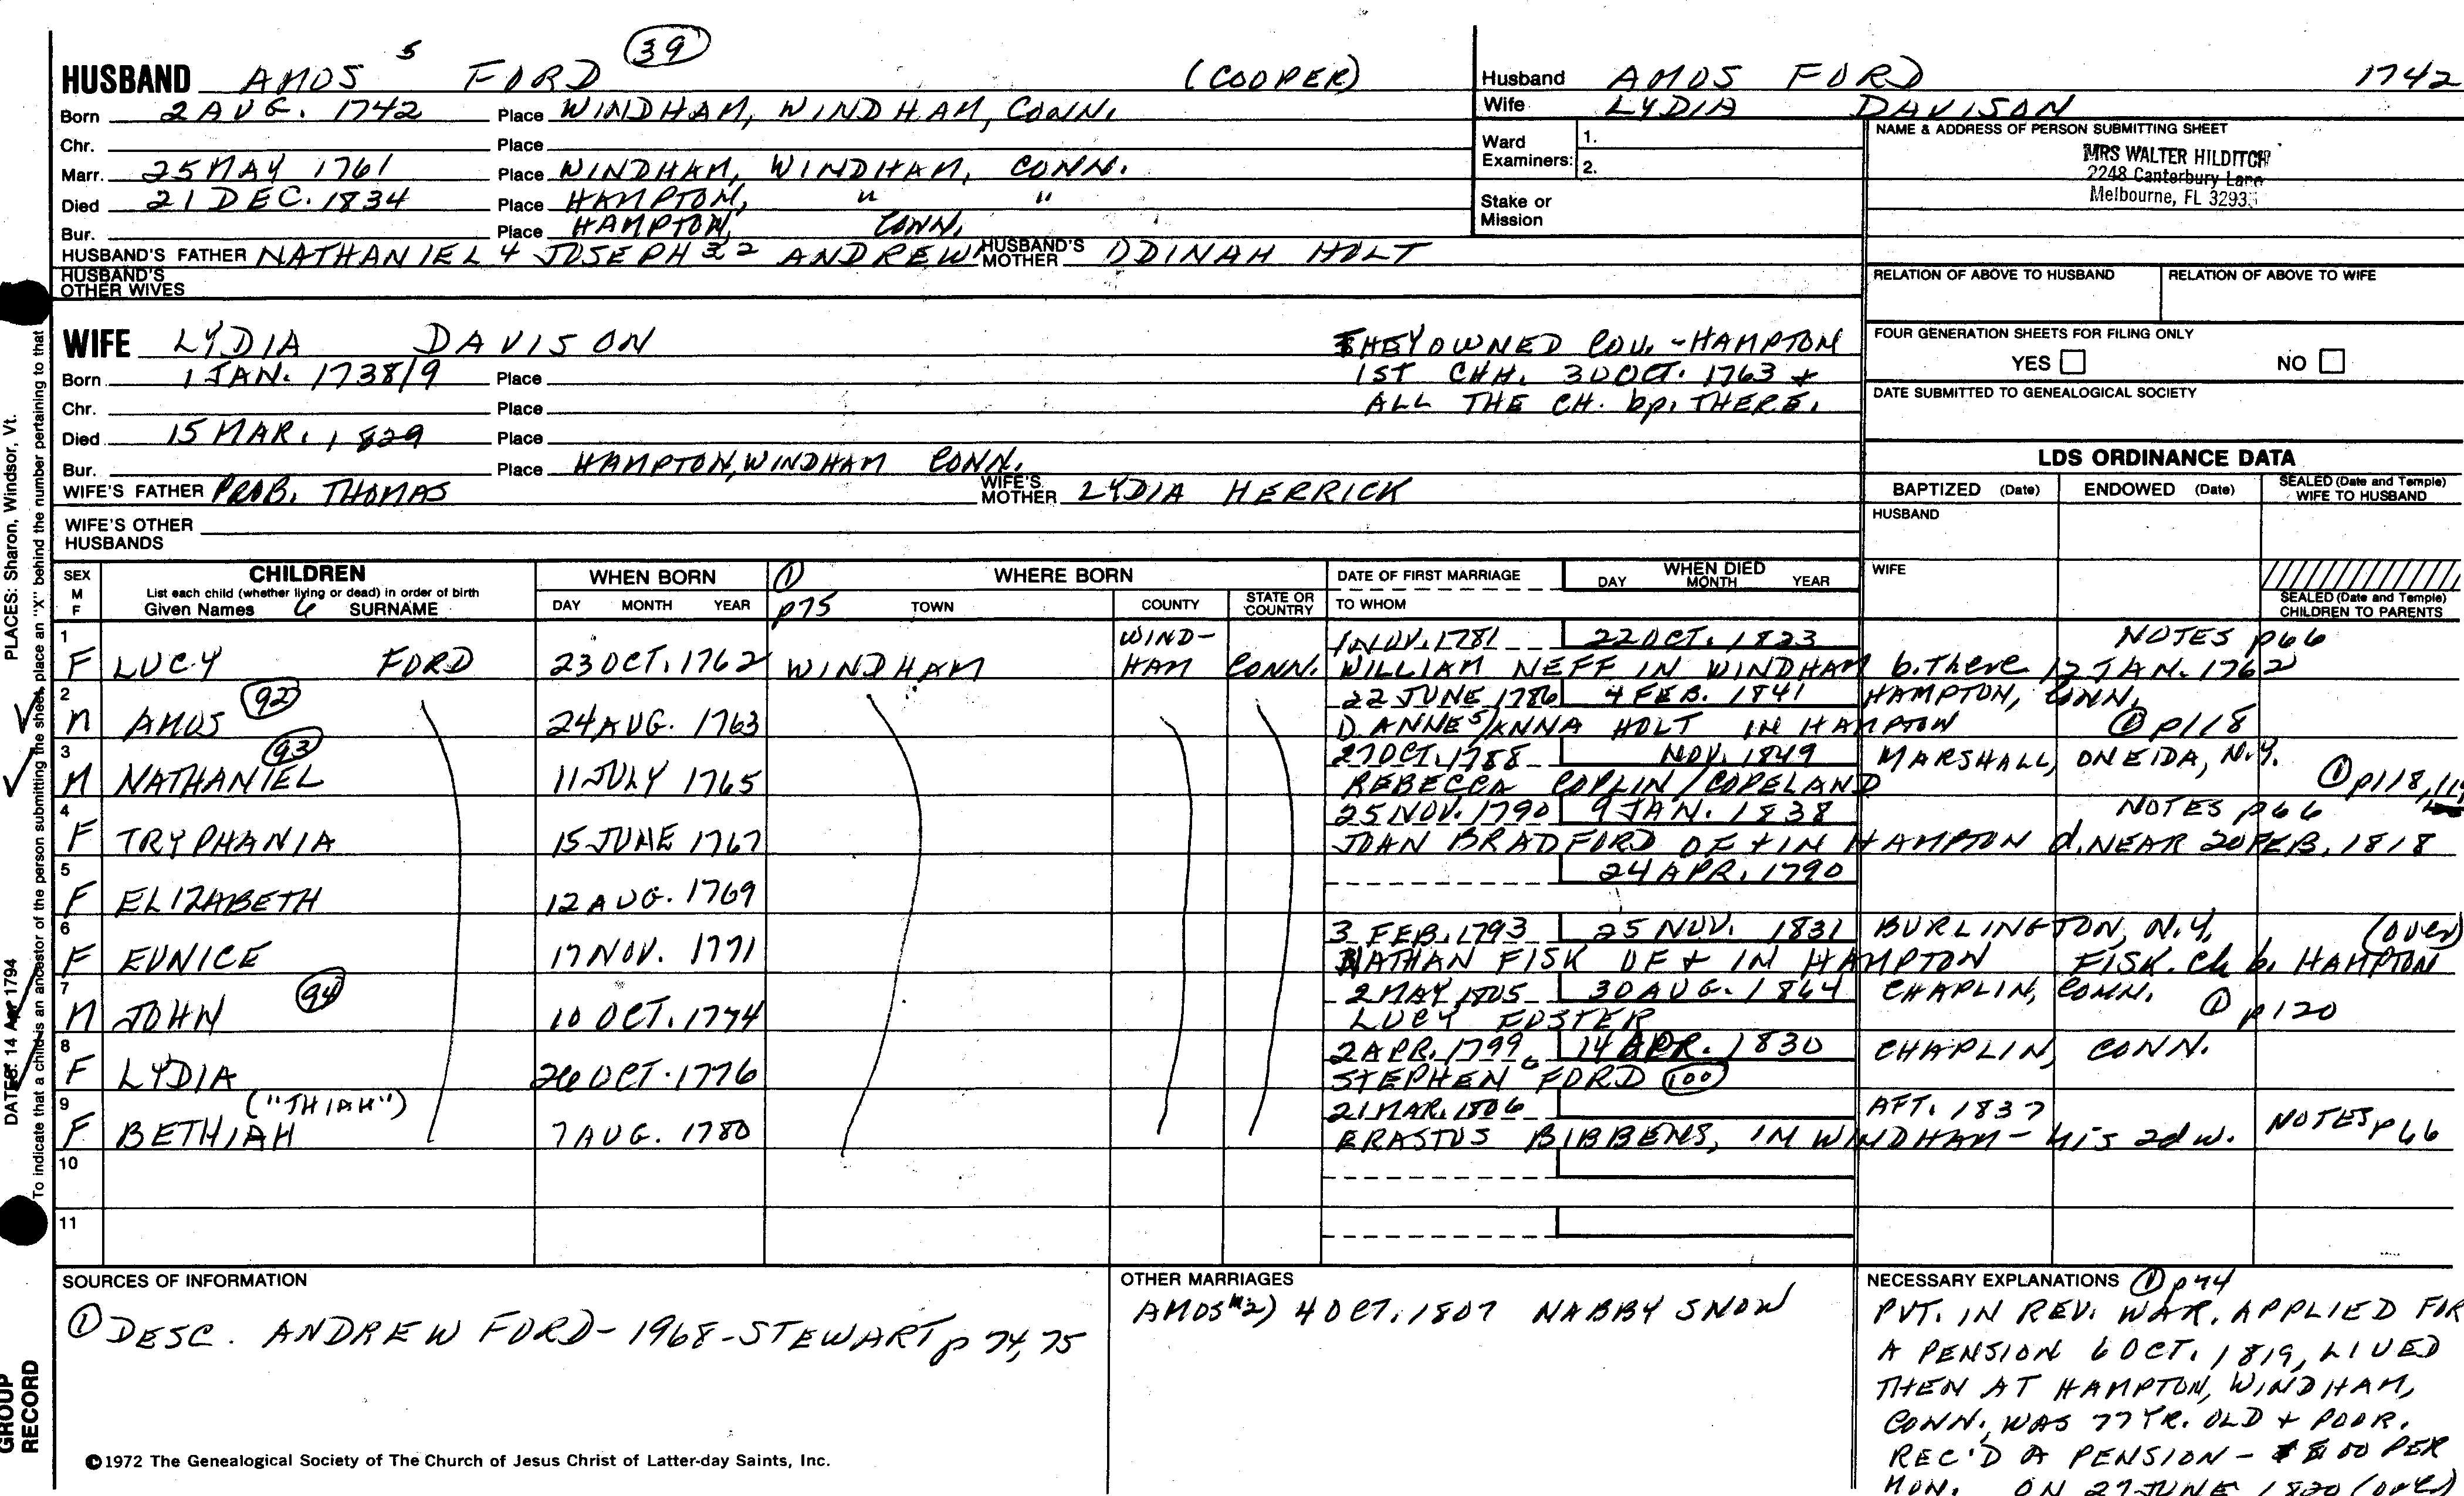 HUSBAND AMOS 5 FORD 39 (COOPER)
Born 2 AUG. 1742 Place WINDHAM, WINDHAM, CONN.
Chr. Place
Marr. 25 MAY 1761 Place WINDHAM, WINDHAM, CONN.
Died 21 DEC. 1834 Place HAMPTON, " "
Bur. Place HAMPTON, CONN.
HUSBAND'S FATHER NATHANIEL 4 JOSEPH 3 2 ANDREW HUSBAND'S MOTHER DINAH HOLT
HUSBAND'S OTHER WIVES
Husband AMOS FORD 1742
Wife LYDIA DAVISON
Ward Examiners: 1.
2.
Stake or Mission
NAME & ADDRESS OF PERSON SUBMITTING SHEET
MRS WALTER HILDITCH
2248 Canterbury Lane
Melbourne, FL 3293
RELATION OF ABOVE TO HUSBAND RELATION OF ABOVE TO WIFE
WIFE LYDIA DAVISON
Born 1 JAN. 1738/9 Place
Chr. Place
Died 15 MAR. 1829 Place
Bur. Place HAMPTON, WINDHAM CONN.
WIFE'S FATHER PROB. THOMAS WIFE'S MOTHER LYDIA HERRICK
WIFE'S OTHER HUSBANDS
THEY OWNED COV. - HAMPTON
1ST CHH. 30 OCT. 1763 +
ALL THE CH. bp. THERE.
FOUR GENERATION SHEETS FOR FILING ONLY
YES NO
DATE SUBMITTED TO GENEALOGICAL SOCIETY
LDS ORDINANCE DATA
BAPTIZED (Date) ENDOWED (Date) SEALED (Date and Temple) WIFE TO HUSBAND
HUSBAND
WIFE
SEALED (Date and Temple) CHILDREN TO PARENTS
SEX M F
CHILDREN
List each child (whether living or dead) in order of birth
Given Names 6 SURNAME
WHEN BORN
DAY MONTH YEAR
① p75
WHERE BORN
TOWN COUNTY STATE OR COUNTRY
DATE OF FIRST MARRIAGE
TO WHOM
WHEN DIED
DAY MONTH YEAR
1 F LUCY FORD 23 OCT. 1762 WINDHAM WIND-HAM CONN. 1 NOV. 1781 22 OCT. 1823 NOTES p66
WILLIAM NEFF IN WINDHAM b. There 12 JAN. 1762
2 M AMOS 92 24 AUG. 1763 22 JUNE 1786 4 FEB. 1841 HAMPTON, CONN.
D. ANNE 5/ANNA HOLT IN HAMPTON ① p118
3 M NATHANIEL 93 11 JULY 1765 27 OCT. 1788 NOV. 1849 MARSHALL, ONEIDA, N.Y.
REBECCA COPLIN/COPELAND ① p118,
4 F TRYPHANIA 15 JUNE 1767 25 NOV. 1790 9 JAN. 1838 NOTES p66
JOHN BRADFORD OF + IN HAMPTON d. NEAR 20 FEB. 1818
5 F ELIZABETH 12 AUG. 1769 24 APR. 1790
6 F EUNICE 17 NOV. 1771 3 FEB. 1793 25 NOV. 1831 BURLINGTON, N.Y. (over)
NATHAN FISK OF + IN HAMPTON FISK. Ch b. HAMPTON
7 M JOHN 94 10 OCT. 1774 2 MAY 1805 30 AUG. 1864 CHAPLIN, CONN.
LUCY FOSTER ① p120
8 F LYDIA 26 OCT. 1776 2 APR. 1799 14 APR. 1830 CHAPLIN, CONN.
STEPHEN 6 FORD 100
9 F BETHIAH ("THIAH") 7 AUG. 1780 21 MAR. 1806 AFT. 1837
ERASTUS BIBBENS, IN WINDHAM - his 2d w. NOTES p66
10
11
SOURCES OF INFORMATION
① DESC. ANDREW FORD - 1968 - STEWART p 74, 75
©1972 The Genealogical Society of The Church of Jesus Christ of Latter-day Saints, Inc.
OTHER MARRIAGES
AMOS m 2) 4 OCT. 1807 NABBY SNOW
NECESSARY EXPLANATIONS ① p74
PVT. IN REV. WAR. APPLIED FOR
A PENSION 6 OCT. 1819, LIVED
THEN AT HAMPTON, WINDHAM,
CONN., WAS 77 YR. OLD + POOR.
REC'D A PENSION - PER
MON. ON 27 JUNE 1820 (over)
PLACES: Sharon, Windsor, Vt.
DATES: 14 Apr 1794
To indicate that a child is an ancestor of the person submitting the sheet, place an "X" behind the number pertaining to that
GROUP
RECORD